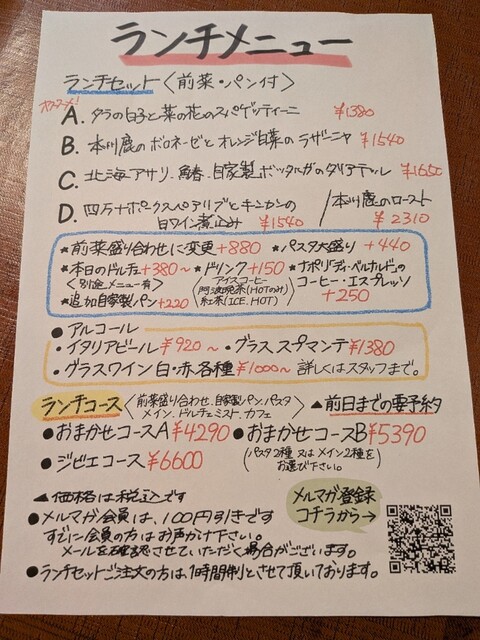 ランチメニュー
ランチセット〈前菜・パン付〉
オススメ!
A. タラの白子と菜の花のスパゲッティーニ ¥1380
B. 本州鹿のボロネーゼとオレンジ白菜のラザーニャ ¥1540
C. 北海アサリ、自家製ボッタルガのタリアテッレ ¥1650
D. 四万十ポークスペアリブとキンカンの白ワイン煮込み ¥1540
/本州鹿のロースト ¥2310
★前菜盛り合わせに変更+880 ★パスタ大盛り +440
★本日のドルチェ+380~ 〈別途メニュー有〉
★ドリンク+150 (アイスコーヒー 阿波晩茶(HOTのみ) 紅茶(ICE、HOT))
★ナポリ「ディ・ベルナルド」のコーヒー・エスプレッソ +250
★追加自家製パン+220
●アルコール
・イタリアビール¥920~ ・グラス スプマンテ¥1380
・グラスワイン 白・赤 各種 ¥1000~ 詳しくはスタッフまで。
ランチコース〈前菜盛り合わせ、自家製パン、パスタ メイン、ドルチェミスト、カフェ〉 ▲前日までの要予約
●おまかせコースA¥4290 ●おまかせコースB¥5390
(パスタ2種 又は メイン2種をお選び下さい。)
●ジビエコース¥6600
▲価格は税込です
●メルマガ会員は、100円引きです
すでに会員の方はお声がけ下さい。
メールを確認させていただく場合がございます。
メルマガ登録
コチラから→
●ランチセットご注文の方は、1時間制とさせて頂いております。